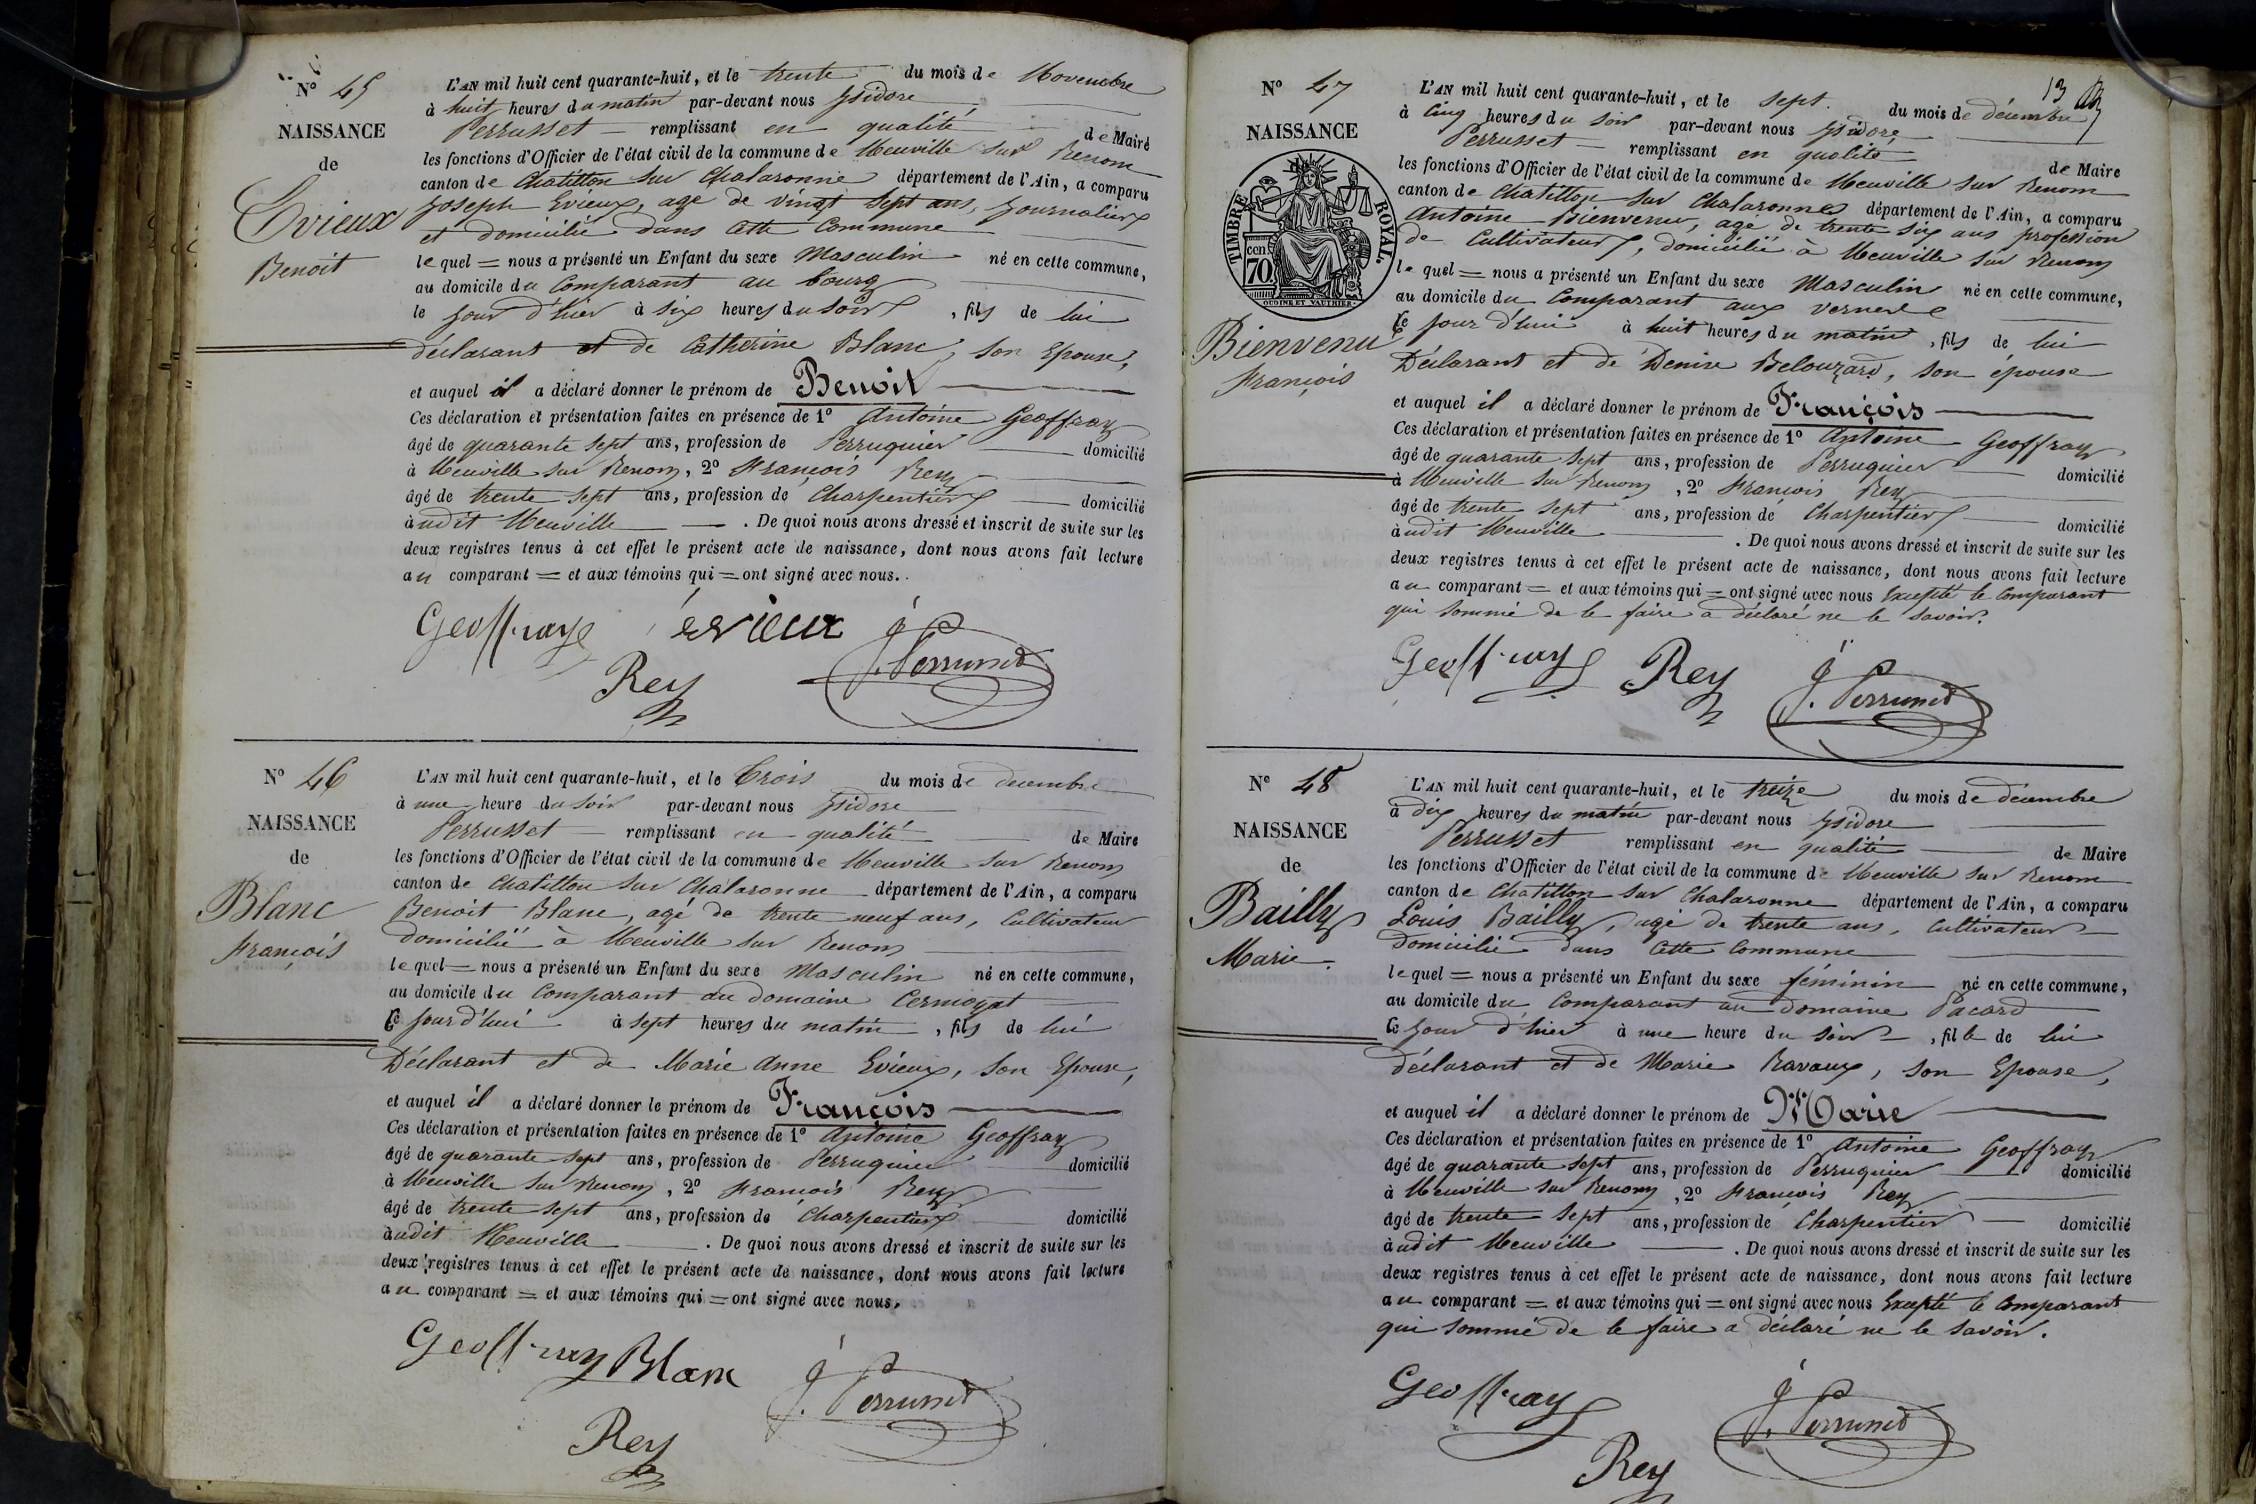 N° 45
NAISSANCE
de
Evieux
Benoit
L'AN mil huit cent quarante-huit, et le trente du mois de Novembre
à huit heures du matin par-devant nous Isidore
Perrusset remplissant en qualité de Maire
les fonctions d'Officier de l'état civil de la commune de Neuville sur Renom
canton de Chatillon sur Chalaronne département de l'Ain, a comparu
Joseph Evieux, agé de vingt sept ans, Journalier
et domicilié dans cette Commune
lequel = nous a présenté un Enfant du sexe Masculin né en cette commune,
au domicile du Comparant au bourg
le jour d'hier à six heures du soir, fils de lui
déclarant et de Catherine Blanc, son Epouse,
et auquel il a déclaré donner le prénom de Benoit
Ces déclaration et présentation faites en présence de 1° Antoine Geoffray
âgé de quarante sept ans, profession de Perruquier domicilié
à Neuville sur Renom, 2° François Rey
âgé de trente sept ans, profession de Charpentier domicilié
àudit Neuville. De quoi nous avons dressé et inscrit de suite sur les
deux registres tenus à cet effet le présent acte de naissance, dont nous avons fait lecture
au comparant = et aux témoins qui = ont signé avec nous.
Geoffray évieux J. Perrusset
Rey
N° 46
NAISSANCE
de
Blanc
François
L'AN mil huit cent quarante-huit, et le Trois du mois de decembre
à une heure du soir par-devant nous Isidore
Perrusset remplissant en qualité de Maire
les fonctions d'Officier de l'état civil de la commune de Neuville sur Renom
canton de Chatillon sur Chalaronne département de l'Ain, a comparu
Benoit Blanc, agé de trente neuf ans, Cultivateur
domicilié à Neuville sur Renom
lequel = nous a présenté un Enfant du sexe Masculin né en cette commune,
au domicile du Comparant au domaine Cermoyat
Ce jourd'hui à sept heures du matin, fils de lui
Déclarant et de Marie Anne Evieux, son Epouse,
et auquel il a déclaré donner le prénom de François
Ces déclaration et présentation faites en présence de 1° Antoine Geoffray
âgé de quarante sept ans, profession de Perruquier domicilié
à Neuville sur Renom, 2° François Rey
âgé de trente sept ans, profession de Charpentier domicilié
àudit Neuville. De quoi nous avons dressé et inscrit de suite sur les
deux registres tenus à cet effet le présent acte de naissance, dont nous avons fait lecture
au comparant = et aux témoins qui = ont signé avec nous.
Geoffray Blanc J. Perrusset
Rey
13
N° 47
NAISSANCE
de
TIMBRE ROYAL.
70 cen.
OUDINE ET VAUTHIER.
Bienvenu
François
L'AN mil huit cent quarante-huit, et le sept du mois de décembre
à Cinq heures du soir par-devant nous Isidore
Perrusset remplissant en qualité de Maire
les fonctions d'Officier de l'état civil de la commune de Neuville sur Renom
canton de Chatillon sur Chalaronne département de l'Ain, a comparu
Antoine Bienvenu, agé de trente six ans profession
de Cultivateur, domicilié à Neuville sur Renom
lequel = nous a présenté un Enfant du sexe Masculin né en cette commune,
au domicile du Comparant aux
Ce jour d'hui à huit heures du matin, fils de lui
Déclarant et de Denise Belouzard, son épouse
et auquel il a déclaré donner le prénom de François
Ces déclaration et présentation faites en présence de 1° Antoine Geoffray
âgé de quarante sept ans, profession de Perruquier domicilié
à Neuville sur Renom, 2° François Rey
âgé de trente sept ans, profession de Charpentier domicilié
àudit Neuville. De quoi nous avons dressé et inscrit de suite sur les
deux registres tenus à cet effet le présent acte de naissance, dont nous avons fait lecture
au comparant = et aux témoins qui = ont signé avec nous Excepté le Comparant
qui sommé de le faire a déclaré ne le savoir.
Geoffray Rey J. Perrusset
N° 48
NAISSANCE
de
Bailly
Marie.
L'AN mil huit cent quarante-huit, et le treize du mois de décembre
à dix heures du matin par-devant nous Isidore
Perrusset remplissant en qualité de Maire
les fonctions d'Officier de l'état civil de la commune de Neuville sur Renom
canton de Chatillon sur Chalaronne département de l'Ain, a comparu
Louis Bailly, agé de trente ans, Cultivateur
domicilié dans cette Commune
lequel = nous a présenté un Enfant du sexe féminin né en cette commune,
au domicile du Comparant au domaine Pacard
le jour d'hier à une heure du soir, fille de lui
déclarant et de Marie Ravaux, son Epouse,
et auquel il a déclaré donner le prénom de Marie
Ces déclaration et présentation faites en présence de 1° Antoine Geoffray
âgé de quarante sept ans, profession de Perruquier domicilié
à Neuville sur Renom, 2° François Rey
âgé de trente sept ans, profession de Charpentier domicilié
àudit Neuville. De quoi nous avons dressé et inscrit de suite sur les
deux registres tenus à cet effet le présent acte de naissance, dont nous avons fait lecture
au comparant = et aux témoins qui = ont signé avec nous Excepté le Comparant
qui sommé de le faire a déclaré ne le savoir.
Geoffray J. Perrusset
Rey